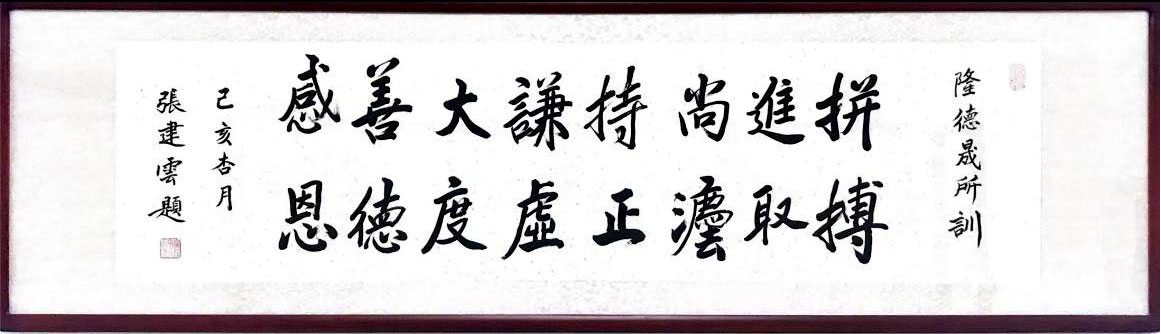 隆德晟所訓
拼搏
進取
尚灋
持正
謙虛
大度
善德
感恩
己亥杏月
張建雲題